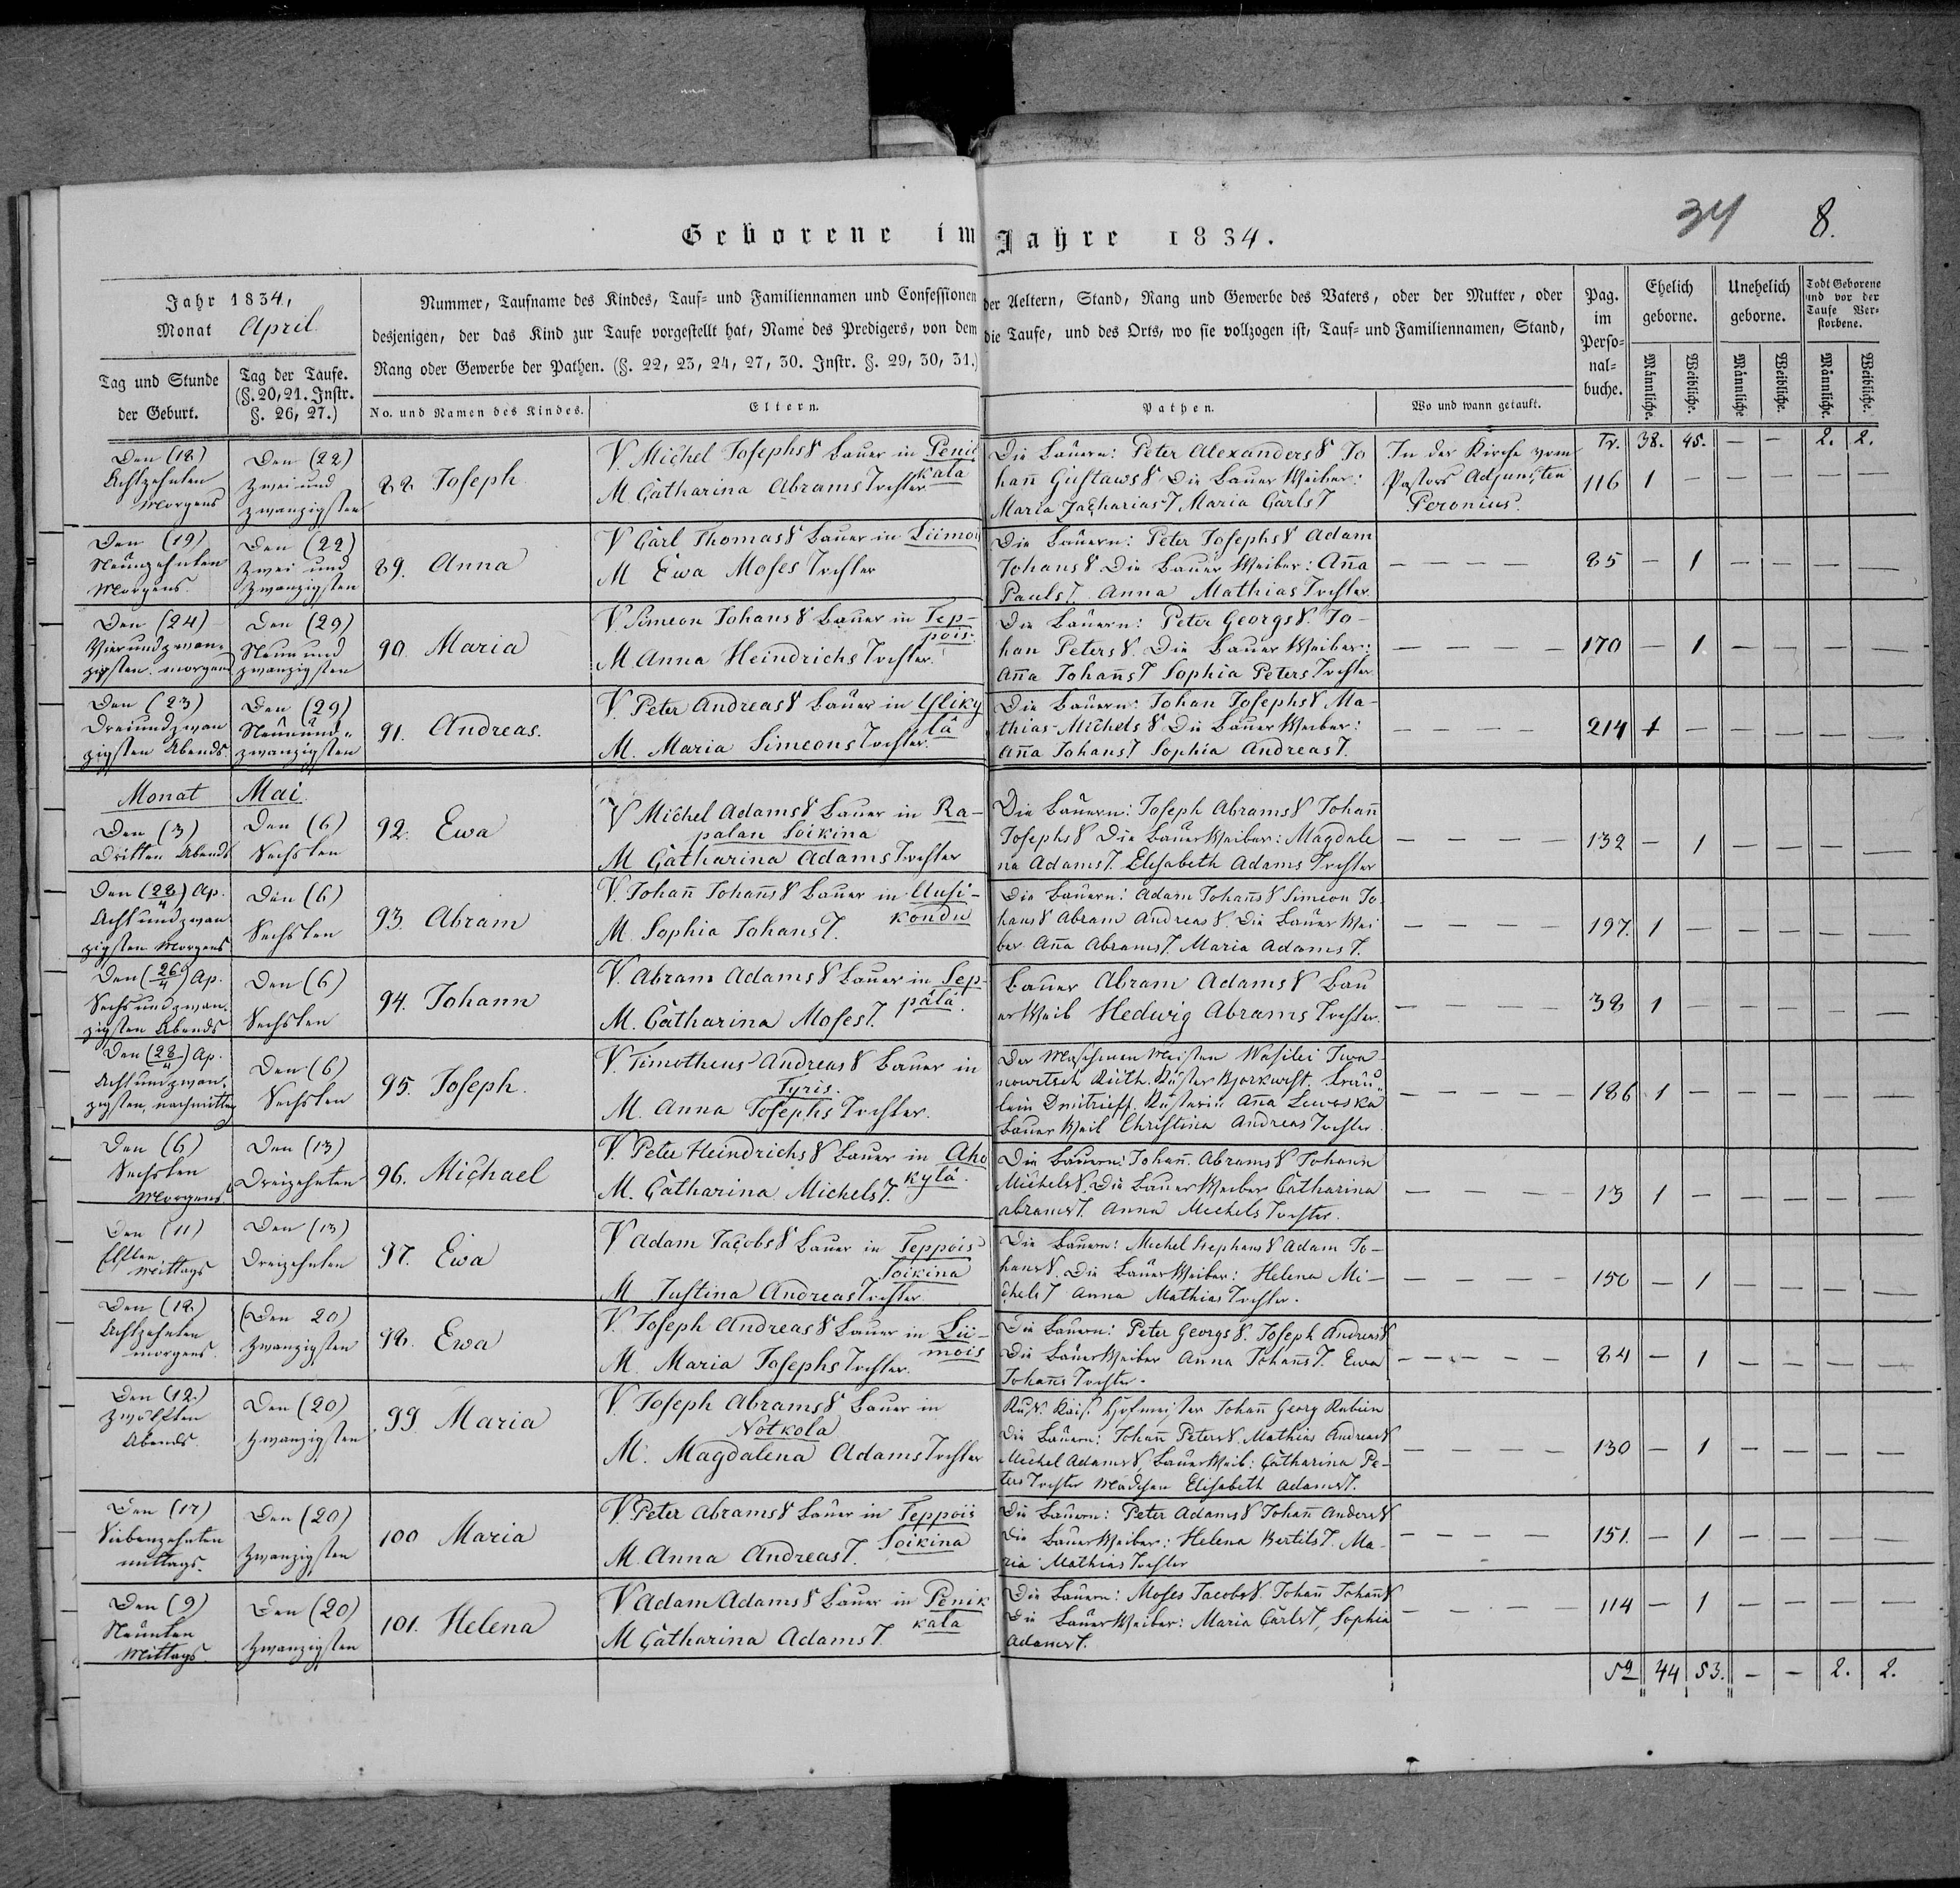 34 8.
Geborene im Jahre 1834.
Jahr 1834,
Monat April.
Tag und Stunde der Geburt.
Tag der Taufe. (§. 20, 21. Instr. §. 26, 27.)
Nummer, Taufname des Kindes, Tauf- und Familiennamen und Confessionen der Aeltern, Stand, Rang und Gewerbe des Vaters, oder der Mutter, oder
desjenigen, der das Kind zur Taufe vorgestellt hat, Name des Predigers, von dem die Taufe, und des Orts, wo sie vollzogen ist, Tauf- und Familiennamen, Stand,
Rang oder Gewerbe der Pathen. (§. 22, 23, 24, 27, 30. Instr. §. 29, 30, 31.)
No. und Namen des Kindes.
Eltern.
Pathen.
Wo und wann getauft.
Pag. im Perso-nal-buche.
Ehelich geborne.
Unehelich geborne.
Todt Geborene und vor der Taufe Ver-storbene.
Männliche. Weibliche. Männliche Weibliche. Männliche. Weibliche.
Tr. 38. 45. — — 2. 2.
Den (18)
Achtzehnten
Morgens
Den (22)
Zwei und
zwanzigsten
88. Joseph
V. Michel Josephs S Bauer in Penik
kala
M Catharina Abrams Tochter
Die Bauern: Peter Alexanders S Jo
hañ Gustaws S Die Bauer Weiber:
Maria Zacharias T Maria Carls T
In der Kirche vom
Pastors Adjuncten
Peronius.
116 1 — — — — —
Den (19)
Neunzehnten
Morgens.
Den (22)
Zwei und
Zwanzigsten
89. Anna
V Carl Thomas S Bauer in Liimois
M Ewa Moses Tochter
Die Bauern: Peter Josephs S Adam
Johans S Die Bauer Weiber: Aña
Pauls T. Anna Mathias Tochter
— — — —
85 — 1 — — — —
Den (24)
Vierundzwan-
zigsten morgens
Den (29)
Neun und
zwanzigsten
90. Maria
V. Simeon Johans S Bauer in Tep-
pois.
M. Anna Heindrichs Tochter.
Die Bauern: Peter Georgs S. Jo-
han Peters S. Die Bauer Weiber:
Aña Johañs T Sophia Peters Tochter
— — — —
170 — 1. — — — —
Den (23)
Dreiundzwan
zigsten Abends
Den (29)
Neunund-
zwanzigsten
91. Andreas.
V. Peter Andreas S Bauer in Yliky
lä
M. Maria Simeons Tochter.
Die Bauern: Johan Josephs S Ma-
thias Michels S. Die Bauer Weiber:
Aña Johans T Sophia Andreas T.
— — — —
214 1 — — — — —
Monat Mai
Den (3)
Dritten Abends
Den (6)
Sechsten
92. Ewa
V Michel Adams S Bauer in Ra-
palan Soikina
M Catharina Adams Tochter
Die Bauern: Joseph Abrams S Johañ
Josephs S Die Bauer Weiber: Magdale
na Adams T. Elisabeth Adams Tochter
— — — —
132 — 1 — — — —
Den (28/4) Ap.
Acht und zwan
zigsten Morgens
Den (6)
Sechsten
93. Abram
V. Johañ Johañs S Bauer in Uusi-
kondu
M. Sophia Johans T.
Die Bauern: Adam Johañs S Simeon Jo
hans S Abram Andreas S. Die Bauer Wei
ber Aña Abrams T. Maria Adams T.
— — — —
197. 1 — — — — —
Den (26/4) Ap.
Sechs und zwan-
zigsten Abends
Den (6)
Sechsten
94. Johann
V. Abram Adams S Bauer in Sep-
pälä.
M. Catharina Moses T.
Bauer Abram Adams S Bau
er Weib Hedwig Abrams Tochter.
— — — —
38 1 — — — — —
Den (28/4) Ap.
Acht und zwan-
zigsten, nachmittag
Den (6)
Sechsten
95. Joseph.
V. Timotheus Andreas S Bauer in
Tyris.
M. Anna Josephs Tochter.
Der Maschinen Meister Wasilei Iwa-
nowitsch Küster Fräu-
lein Dmitrieff, Küsterin Aña
Bauer Weib Christina Andreas Tochter
— — — — —
186 1 — — — — —
Den (6)
Sechsten
Morgens.
Den (13)
Dreizehnten
96. Michael
V. Peter Heindrichs S Bauer in Aho
kylä.
M. Catharina Michels T.
Die Bauern: Johañ. Abrams S Johann
Michels S. Die Bauer Weiber Catharina
Abrams T. Anna Michels Tochter.
— — — —
13 1 — — — — —
Den (11)
Elften
Mittags
Den (13)
Dreizehnten
97. Ewa
V Adam Jacobs S Bauer in Teppois
Soikina
M Justina Andreas Tochter
Die Bauern: Michel Stephans S Adam Jo-
hans S. Die Bauer Weiber: Helena Mi-
chels T Anna Mathias Tochter.
— — — —
150 — 1 — — — —
Den (18)
Achtzehnten
morgens.
(Den 20)
Zwanzigsten
98. Ewa
V. Joseph Andreas S Bauer in Lii-
mois
M. Maria Josephs Tochter.
Die Bauern: Peter Georgs S. Joseph Andreas S
Die Bauer Weiber Anna Johañs T. Ewa
Johañs Tochter.
— — — — —
84 — 1 — — — —
Den (12.)
Zwölften
Abends.
Den (20)
Zwanzigsten
99 Maria
V. Joseph Abrams S Bauer in
Notkola
M. Magdalena Adams Tochter
Russ. Kais. Hofmeister Johañ Georg Rubin
Die Bauern: Johañ Peters S. Mathias Andreas S
Michel Adams S, Bauer Weib: Catharina Pe-
ters Tochter Mädchen Elisabeth Adams T.
— — — — —
130 — 1 — — — —
Den (17)
Siebenzehnten
mittags.
Den (20)
Zwanzigsten
100 Maria
V. Peter Abrams S Bauer in Teppois
Soikina
M. Anna Andreas T.
Die Bauern: Peter Adams S Johañ Anders S
Die Bauer Weiber: Helena Bertils T. Ma-
ria Mathias Tochter
— — — — —
151. — 1 — — — —
Den (9)
Neunten
Mittags
Den (20)
Zwanzigsten
101. Helena
V Adam Adams S Bauer in Penik
kala
M Catharina Adams T.
Die Bauern: Moses Jacobs S. Johañ Johañs S
Die Bauer Weiber: Maria Carls T, Sophia
Adams T.
— — — —
114 — 1 — — — —
44 53. — — 2. 2.